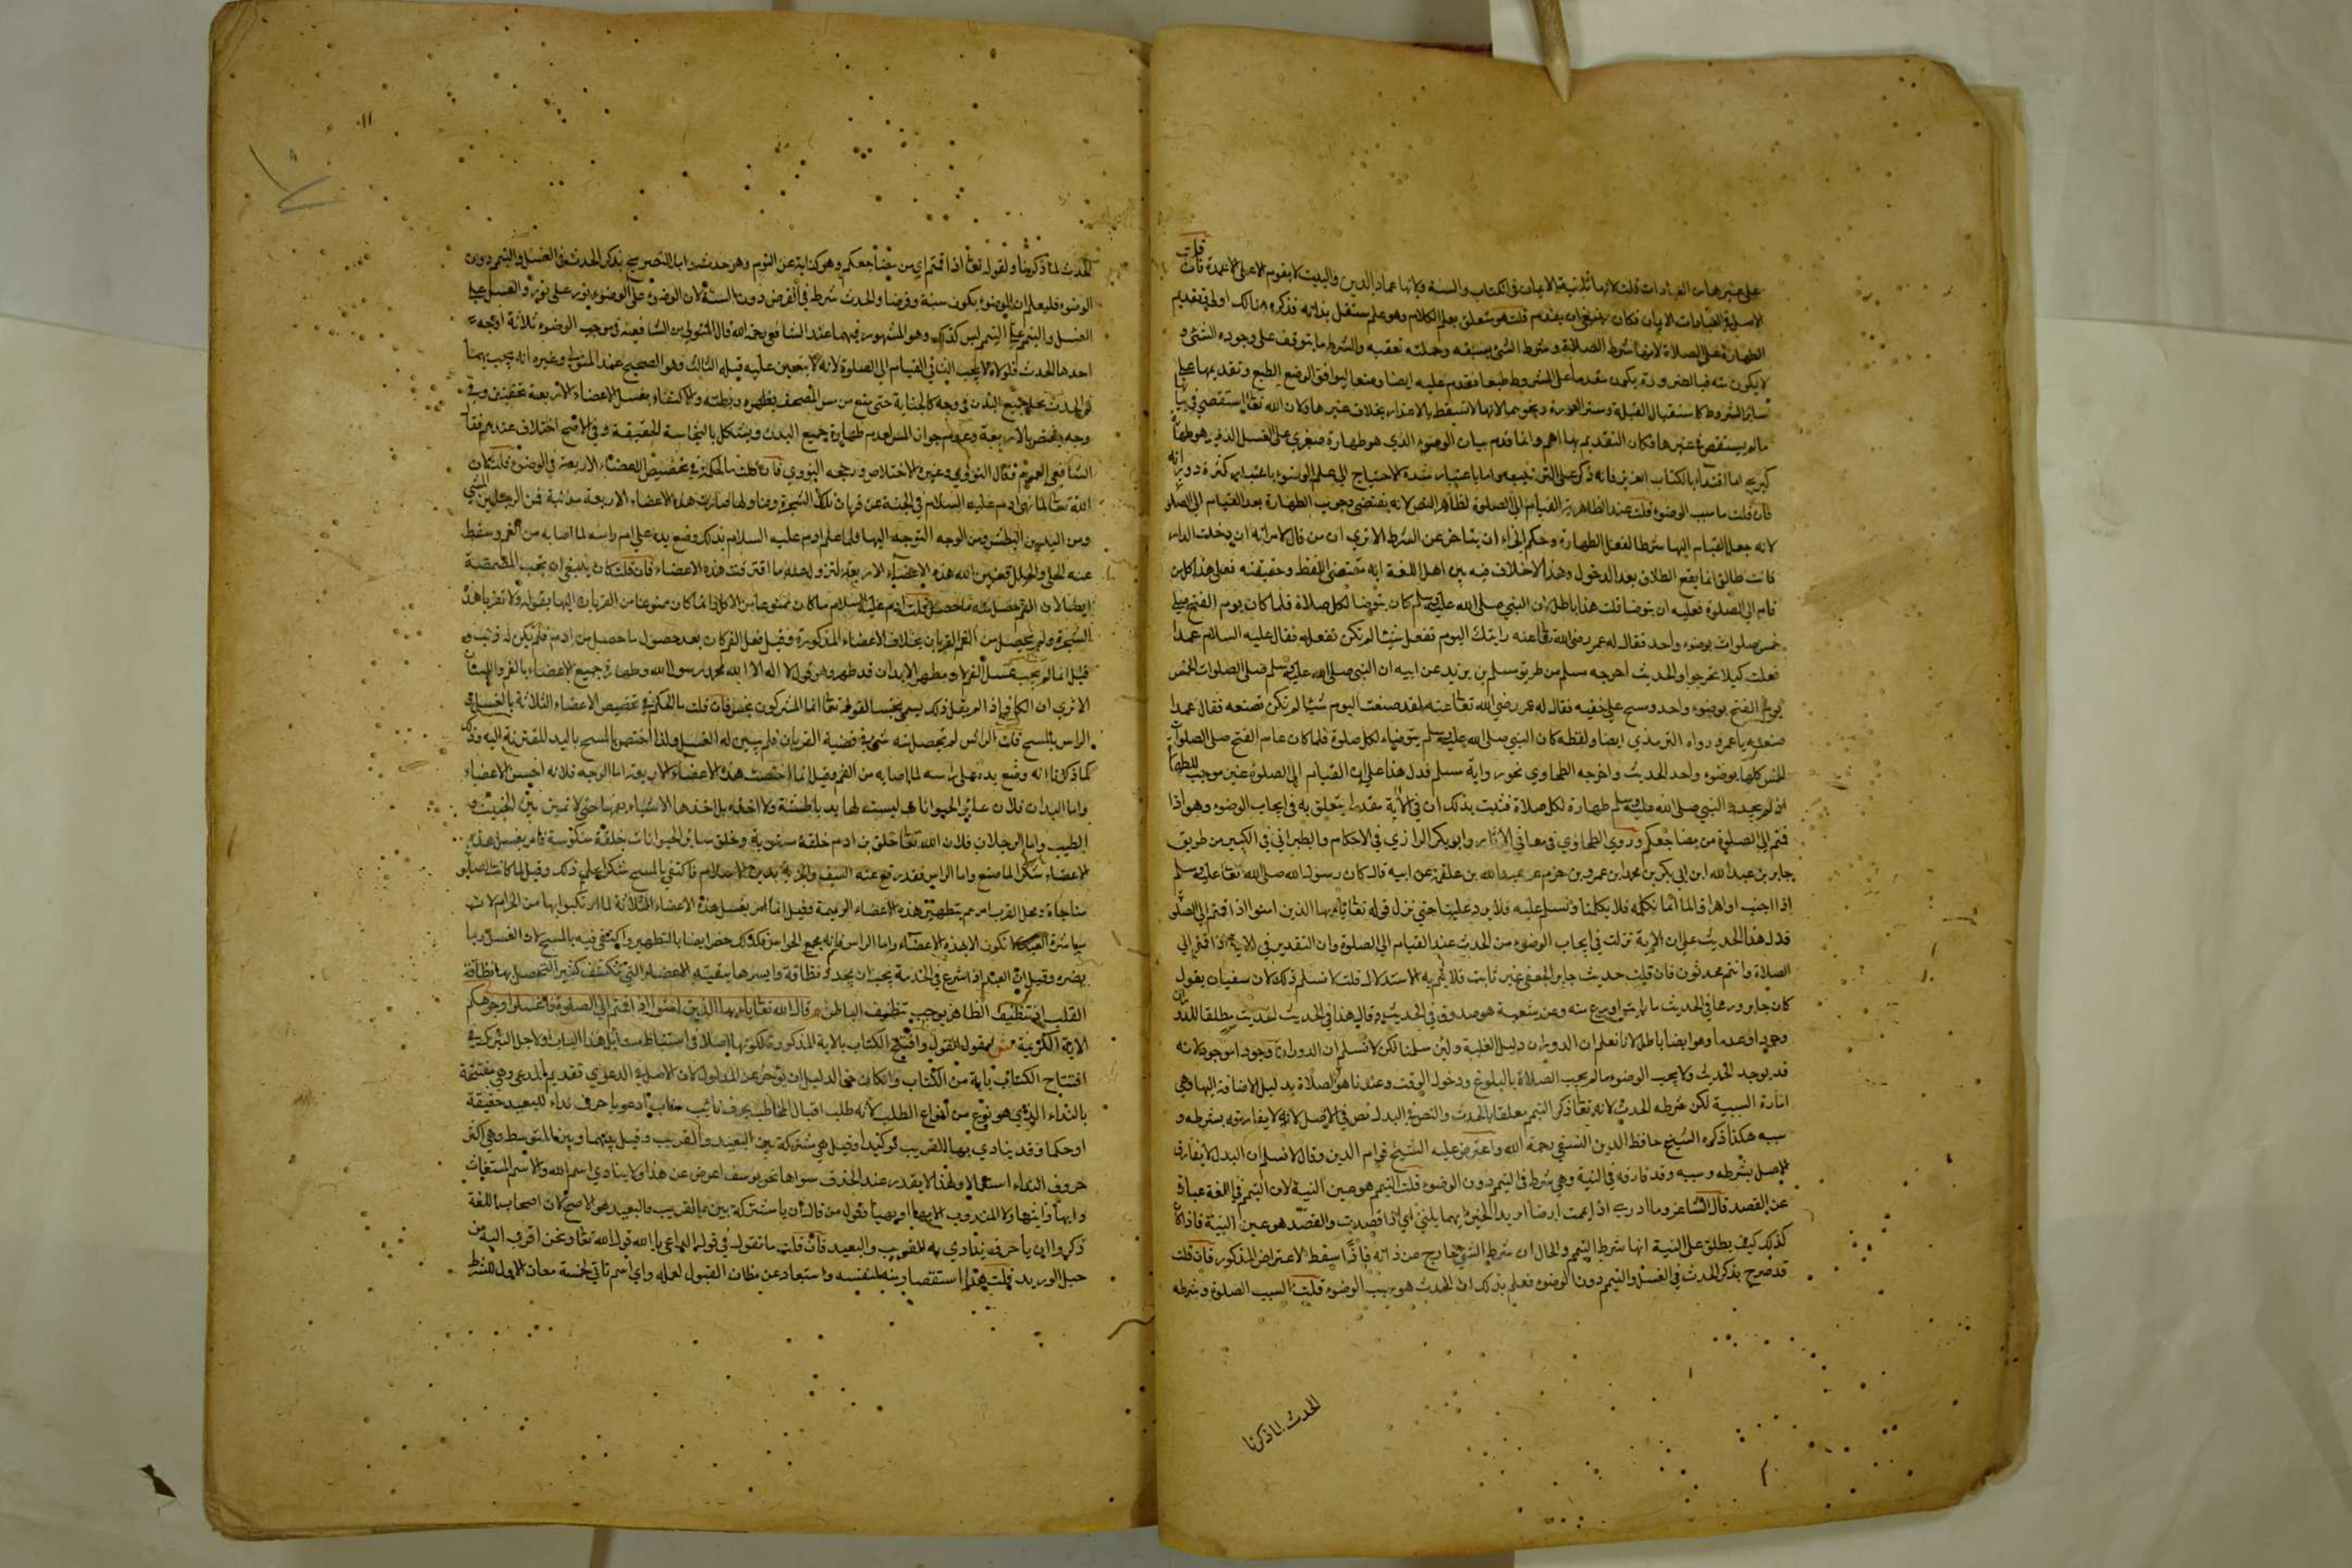 على غيرها من العبادات قلت لانها ثانية الايمان في الكتاب والسنة ولانها عماد الدين والبيت لا يقوم الا على الاعمدة فان قلت
الاصل في العبادات الايمان فكان ينبغي ان يقدم قلت هو متعلق بعلم الكلام وهو علم مستقل بذاته فذكره هنالك اولى في تقديم
الطهارة على الصلاة لانها شرط الصلاة وشرط الشئ يسبقه وجملته تعقبه والشرط ما يتوقف على وجوده الشئ و
لا يكون منه فبالضرورة يكون مقدما على المشروط طبعا فقدم عليه ايضا وضعا ليوافق الوضع الطبع وتقديمها على
سائر الشروط كاستقبال القبلة وستر العورة ونحوهما لانها لا تسقط بالاعذار بخلاف غيرها ولان الله تعالى استقصى في بيانها
ما لم يستقص في غيرها فكان التقديم بها اهم وانما قدم بيان الوضوء الذي هو طهارة صغرى على الغسل الذي هو طهارة
كبرى اما اقتداء بالكتاب العزيز فانه ذكر على الترتيب واما باعتبار شدة الاحتياج الى علم الوضوء باعتبار كثرة دورانه
فان قلت ما سبب الوضوء قلت عند الظاهرية القيام الى الصلوة لظاهر النص لانه يقتضي وجوب الطهارة بعد القيام الى الصلوة
لانه جعل القيام اليها شرطا لفعل الطهارة وحكم الجزاء ان يتاخر عن الشرط الا ترى ان من قال لامراته ان دخلت الدار
فانت طالق انما يقع الطلاق بعد الدخول وهذا لا خلاف فيه بين اهل اللغة انه مقتضى اللفظ وحقيقته فعلى هذا كل من
قام الى الصلوة فعليه ان يتوضا قلت هذا باطل لان النبي صلى الله عليه وسلم كان يتوضا لكل صلاة فلما كان يوم الفتح صلى
خمس صلوات بوضوء واحد فقال له عمر رضي الله تعالى عنه رايتك اليوم تفعل شيئا لم تكن تفعله فقال عليه السلام عمدا
فعلت كيلا تحرجوا والحديث اخرجه مسلم من طريق سليمن بن بريد عن ابيه ان النبي صلى الله عليه وسلم صلى الصلوات الخمس
يوم الفتح بوضوء واحد ومسح على خفيه فقال له عمر رضي الله تعالى عنه لقد صنعت اليوم شيئا لم تكن تصنعه فقال عمدا
صنعته يا عمر ورواه الترمذي ايضا ولفظه كان النبي صلى الله عليه وسلم يتوضاء لكل صلوة فلما كان عام الفتح صلى الصلوات
الخمس كلها بوضوء واحد الحديث واخرجه الطحاوي نحو رواية مسلم فدل هذا على ان القيام الى الصلوة غير موجب للطهارة
اذ لم يجدد النبي صلى الله عليه وسلم طهارة لكل صلاة فثبت بذلك ان في الاية مقدرا يتعلق به في ايجاب الوضوء وهو اذا
قمتم الى الصلوة من مضاجعكم وروى الطحاوي في معاني الاثار وابو بكر الرازي في الاحكام والطبراني في الكبير من طريق
جابر بن عبد الله ابن ابي بكر بن محمد ابن عمرو بن حزم عن عبد الله بن علقمة عن ابيه قال كان رسول الله صلى الله تعالى عليه وسلم
اذا اجنب او اهراق الماء انما نكلمه فلا يكلمنا ونسلم عليه فلا يرد علينا حتى نزل قوله تعالى يا ايها الذين امنوا اذا قمتم الى الصلوة
فدل هذا الحديث على ان الاية نزلت في ايجاب الوضوء من الحدث عند القيام الى الصلوة وان التقدير في الاية اذا قمتم الى
الصلاة وانتم محدثون فان قلت حديث جابر الجعفي غير ثابت فلا يتم به الاستدلال قلت لا نسلم ذلك لان سفيان يقول
كان جابر ورعا في الحديث ما رايت اورع منه وعن شعبة هو صدوق في الحديث وقال هذا في الحديث الحدث مطلقا للدوران
وجودا وعدما وهو ايضا باطل لانا نعلم ان الدوران دليل العلية ولئن سلمنا لكن لا نسلم ان الدوران وجودا موجود لانه
قد يوجد الحدث ولا يجب الوضوء ما لم يجب الصلاة بالبلوغ ودخول الوقت وعندنا هو الصلاة بدليل الاضافة اليها وهي
امارة السببية لكن شرطه الحدث لانه تعالى ذكر التيمم معلقا بالحدث والنص في البدل نص في الاصل لانه لا يفارقه بشرطه و
سببه هكذا ذكره الشيخ حافظ الدين النسفي رحمة الله واعترض عليه الشيخ قوام الدين وقال لا نسلم ان البدل لا يفارق
الاصل بشرطه وسببه وقد فارقه في النية وهي شرط في التيمم دون الوضوء قلت التيمم هو عين النية لان التيمم في اللغة عبارة
عن القصد قال الشاعر وما ادري اذا يممت ارضا اريد الخير ايهما يلينى اي اذا قصدت والقصد هو عين النية فاذا كان
كذلك كيف يطلق على النية انها شرط التيمم والحال ان شرط الشئ خارج عن ذاته فاذا سقط الاعتراض المذكور فان قلت
قد صرح بذكر الحدث في الغسل والتيمم دون الوضوء فعلم بذلك ان الحدث هو سبب الوضوء قلت السبب الصلوة وشرطه
الحدث لما ذكرنا
الحدث لما ذكرنا ولقوله تعالى اذا قمتم اي من مضاجعكم وهو كناية عن النوم وهو حدث واما التصريح بذكر الحدث في الغسل والتيمم دون
الوضوء فليعلم ان الوضوء يكون سنة وفرضا والحدث شرط في الفرض دون السنة لان الوضوء على الوضوء نور على نور والغسل على
الغسل والتيمم على التيمم ليس كذلك وهو المشهور فيهما عند الشافعي رحمه الله قال المتولي من الشافعية في موجب الوضوء ثلاثة اوجه
احدها الحدث فلولاه لا يجب الثاني القيام الى الصلوة لانه لا يتعين عليه قبله الثالث وهو الصحيح عند المتولي وغيره انه يجب بهما
ثم الحدث يحل جميع البدن في وجه كالجنابة حتى منع من مس المصحف بظهره وبطنه والاكتفاء بغسل الاعضاء الاربعة تخفيف وفي
وجه يختص بالاربعة وعدم جواز المس لعدم طهارة جميع البدن ويشكل بالنجاسة الحقيقية وفي الاصح اختلاف عندهم فقال
الشافعي العموم فقال البغوي وغيره الاختصاص ورجحه النووي فان قلت ما الحكمة في تخصيص الاعضاء الاربعة في الوضوء قلت كان
الله تعالى لما نهى ادم عليه السلام في الجنة عن قربان تلك الشجرة وتناولها صارت هذه الاعضاء الاربعة مذنبة فمن الرجلين المشي
ومن اليدين البطش ومن الوجه التوجه اليها فلما علم ادم عليه السلام بذلك وضع يده على ام راسه لما اصابه من الغم وسقط
عنه الحلي والحلل فعين الله هذه الاعضاء الاربعة لتزول عنه ما اقترفت هذه الاعضاء فان قلت كان ينبغي ان يجب المضمضة
ايضا لان الفم حصل منه ما حصل قلت ادم عليه السلام ما كان ممنوعا من الاكل انما كان ممنوعا من القربان اليها بقوله ولا تقربا هذه
الشجرة ولم يحصل من الفم القربان بخلاف الاعضاء المذكورة وقيل فعل الفم كان بعد حصول ما حصل من ادم فلم يكن له ذنب و
قيل انما لم يجب غسل الفم لانه مطهر الابدان قد طهر وهو قول لا اله الا الله محمد رسول الله وطهارة جميع الاعضاء بالفم واللسان
الا ترى ان الكافر اذا لم يقل ذلك يسمى نجسا لقوله تعالى انما المشركون نجس فان قلت ما الحكمة في تخصيص الاعضاء الثلاثة بالغسل و
الراس بالمسح قلت الراس لم تحصل منه شئ في قضية القربان فلم يبين له الغسل ولذا اختص بالمسح باليد للمقترنة اليه وذلك
كما ذكرنا انه وضع يده على راسه لما اصابه من الغم وقيل انما اختصت هذه الاعضاء الاربعة اما الوجه فلانه احسن الاعضاء
واما اليدان فلان سائر الحيوانات ليست لها يد باطشة ولا اخذ بل اخذها الاشياء بفمها حتى لا تميز بين الخبيث و
الطيب واما الرجلان فلان الله تعالى خلق بن ادم خلقة مستوية وخلق سائر الحيوانات خلقة منكوسة فامر بغسل هذه
الاعضاء شكرا لما صنع واما الراس فقد رفع عنه السيف والجزية بدين الاسلام فاكتفى بالمسح شكرا على ذلك وقيل لما كانت الصلوة
مناجاة ومحل القرب امرهم بتطهير هذه الاعضاء الرئيسة وقيل انما امر بغسل هذه الاعضاء الثلاثة لما ارتكبوا بها من الحرام لان
مباشرة العبد لا تكون الا بهذه الاعضاء واما الراس فانه مجمع الحواس فكذلك خص ايضا بالتطهير واكتفى فيه بالمسح لان الغسل ربما
يضره وقيل ان العبد اذا شرع في الخدمة يجب ان يجدد نظافة وايسرها تنقية الاعضاء التي تنكشف كثيرا لتحصل بها نظافة
القلب اذ تنظيف الظاهر يوجب تنظيف الباطن م قال الله تعالى يا ايها الذين امنوا اذا قمتم الى الصلوة فاغسلوا وجوهكم
الاية الكريمة ش مقول القول وافتتح الكتاب بالاية المذكورة لكونها اصلا في استنباط مسائل هذا الباب او لاجل التبرك في
افتتاح الكتاب باية من الكتاب وان كان حق الدليل ان يؤخر عن المدلول لان الاصل في الدعوى تقديم المدعى وهي مفتتحة
بالنداء الذي هو نوع من انواع الطلب لانه طلب اقبال المخاطب بحرف نائب مناب ادعو يا حرف نداء للبعيد حقيقة
او حكما وقد ينادى بها القريب توكيدا وقيل هي مشتركة بين البعيد والقريب وقيل بينهما وبين المتوسط وهي اكثر
حروف النداء استعمالا ولهذا لا يقدر عند الحذف سواها نحو يوسف اعرض عن هذا ولا ينادى اسم الله والاسم المستغاث
وايها وايتها ولا المندوب الا بها او بها وقول من قال ان يا مشتركة بين القريب والبعيد هو الاصح لان اصحاب اللغة
ذكروا ان يا حرف ينادى به القريب والبعيد فان قلت ما تقول في قول الداعي يا الله قول الله تعالى ونحن اقرب اليه من
حبل الوريد قلت هذا استقصار منه لنفسه واستبعاد عن مظان القبول لعمله واي اسم تاتي لخمسة معان الاول للشرط